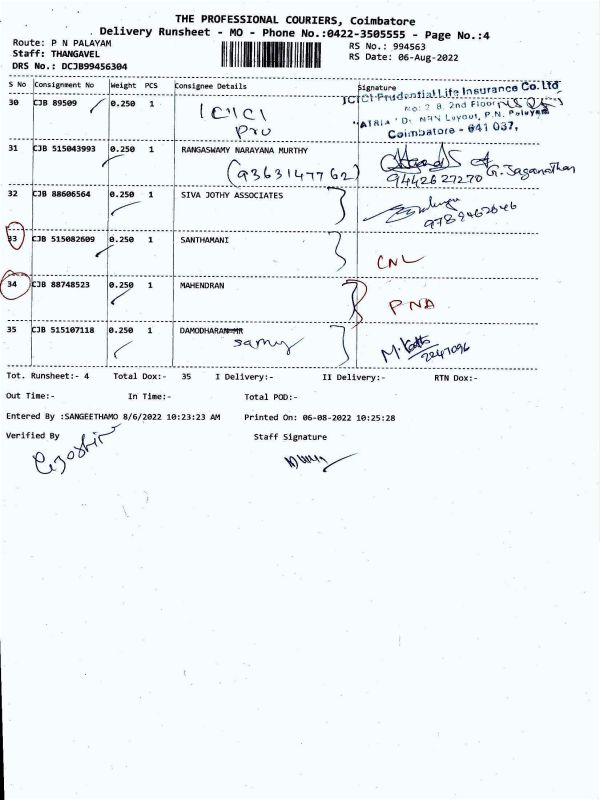 THE PROFESSIONAL COURIERS, Coimbatore
Delivery Runsheet - MO - Phone No.:0422-3505555 - Page No.:4
Route: P N PALAYAM RS No.: 994563
Staff: THANGAVEL RS Date: 06-Aug-2022
DRS No.: DCJB99456304
S No Consignment No Weight PCS Consignee Details Signature
ICICI Prudential Life Insurance Co. Ltd
30 CJB 89509 0.250 1 ICICI No: 2 B, 2nd Floor
Pru "ATRIA" Dr. NRN Layout, P.N. Palayam
Coimbatore - 641 037.
31 CJB 515043993 0.250 1 RANGASWAMY NARAYANA MURTHY
(9363147762) 9442627270 G. Jaganathan
32 CJB 88606564 0.250 1 SIVA JOTHY ASSOCIATES
9789462646
33 CJB 515082609 0.250 1 SANTHAMANI
CNL
34 CJB 88748523 0.250 1 MAHENDRAN
PNA
35 CJB 515107118 0.250 1 DAMODHARAN MR
samy M. 2247096
Tot. Runsheet:- 4 Total Dox:- 35 I Delivery:- II Delivery:- RTN Dox:-
Out Time:- In Time:- Total POD:-
Entered By :SANGEETHAMO 8/6/2022 10:23:23 AM Printed On: 06-08-2022 10:25:28
Verified By Staff Signature